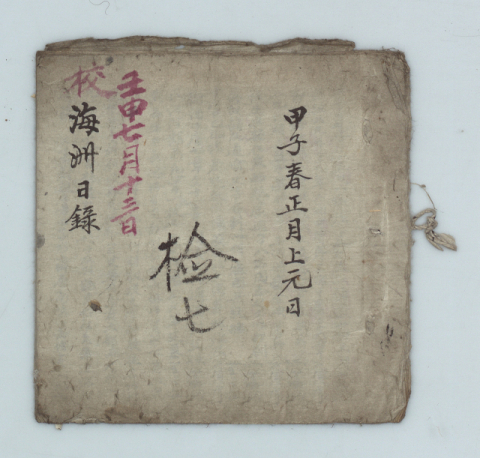 甲子春正月上元日
検七
壬申七月十三日
校
海州日錄